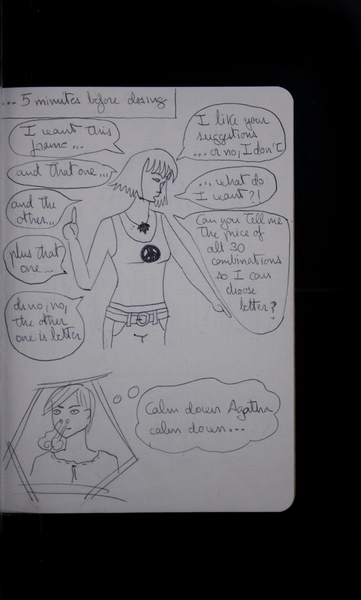 ... 5 minutes before closing
I want this
frame...
and that one...
and the
other...
plus that
one...
no, no,
the other
one is better
I like your
suggestions
... or no, I don't
... what do
I want?!
Can you tell me
the price of
all 30
combinations
so I can
choose
better?
Calm down Agatha
calm down...